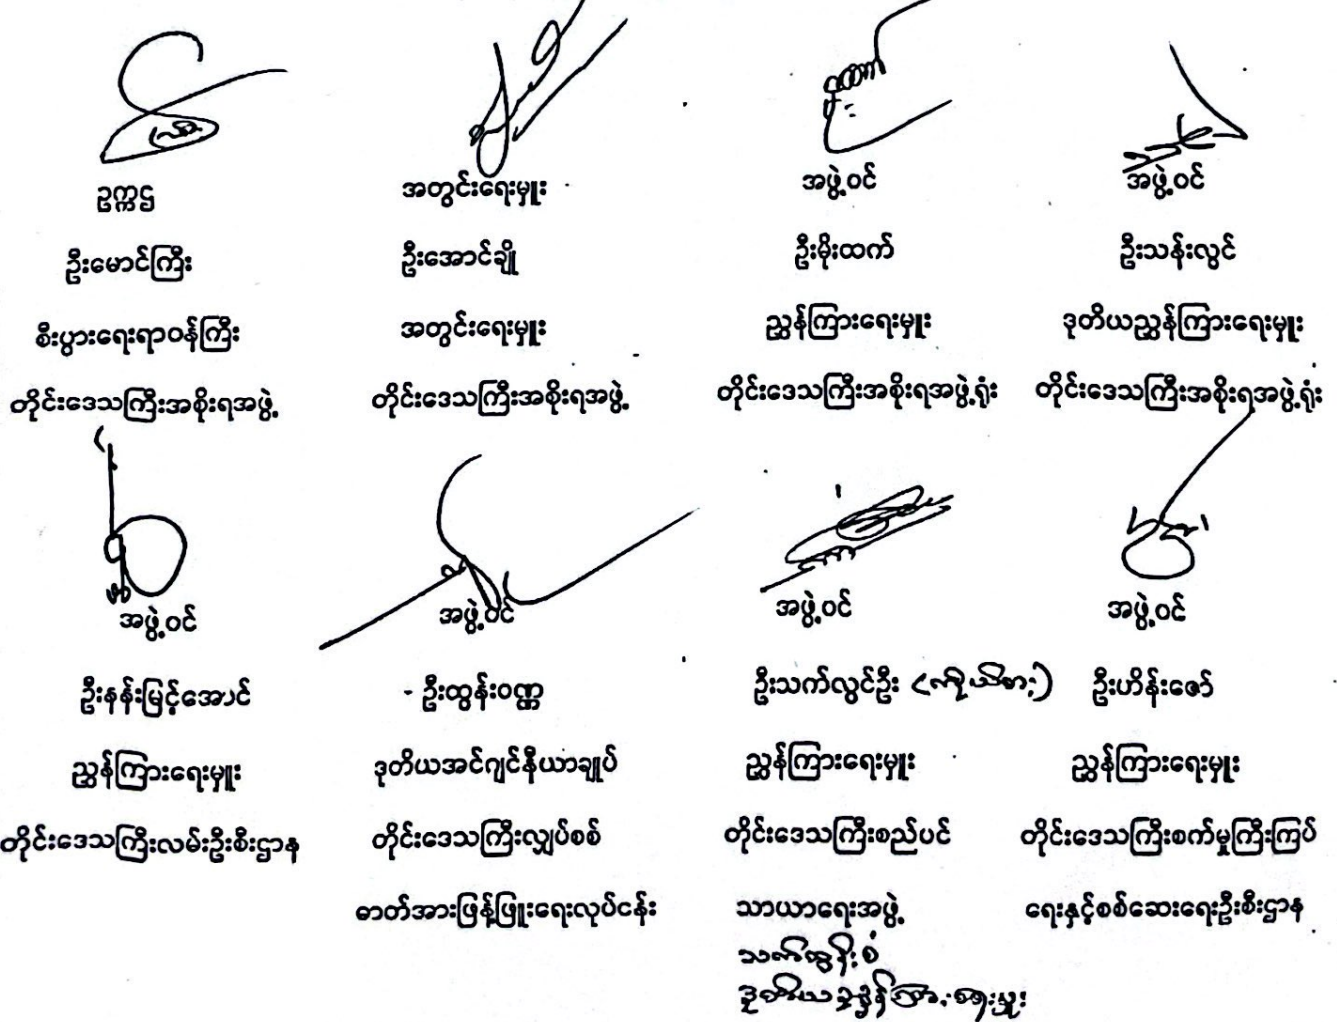 ဥက္ကဌ
ဦးမောင်ကြီး
စီးပွားရေးရာဝန်ကြီး
တိုင်းဒေသကြီးအစိုးရအဖွဲ့
အတွင်းရေးမှူး
ဦးအောင်ချို
အတွင်းရေးမှူး
တိုင်းဒေသကြီးအစိုးရအဖွဲ့
အဖွဲ့ဝင်
ဦးမိုးထက်
ညွှန်ကြားရေးမှူး
တိုင်းဒေသကြီးအစိုးရအဖွဲ့ရုံး
အဖွဲ့ဝင်
ဦးသန်းလွင်
ဒုတိယညွှန်ကြားရေးမှူး
တိုင်းဒေသကြီးအစိုးရအဖွဲ့ရုံး
အဖွဲ့ဝင်
ဦးနန်းမြင့်အောင်
ညွှန်ကြားရေးမှူး
တိုင်းဒေသကြီးလမ်းဦးစီးဌာန
အဖွဲ့ဝင်
- ဦးထွန်းဝဏ္ဏ
ဒုတိယအင်ဂျင်နီယာချုပ်
တိုင်းဒေသကြီးလျှပ်စစ်
ဓာတ်အားဖြန့်ဖြူးရေးလုပ်ငန်း
အဖွဲ့ဝင်
ဦးသက်လွင်ဦး (ကိုယ်စား)
ညွှန်ကြားရေးမှူး
တိုင်းဒေသကြီးစည်ပင်
သာယာရေးအဖွဲ့
သက်ထွန်းစံ
ဒုတိယညွှန်ကြားရေးမှူး
အဖွဲ့ဝင်
ဦးဟိန်းဇော်
ညွှန်ကြားရေးမှူး
တိုင်းဒေသကြီးစက်မှုကြီးကြပ်
ရေးနှင့်စစ်ဆေးရေးဦးစီးဌာန